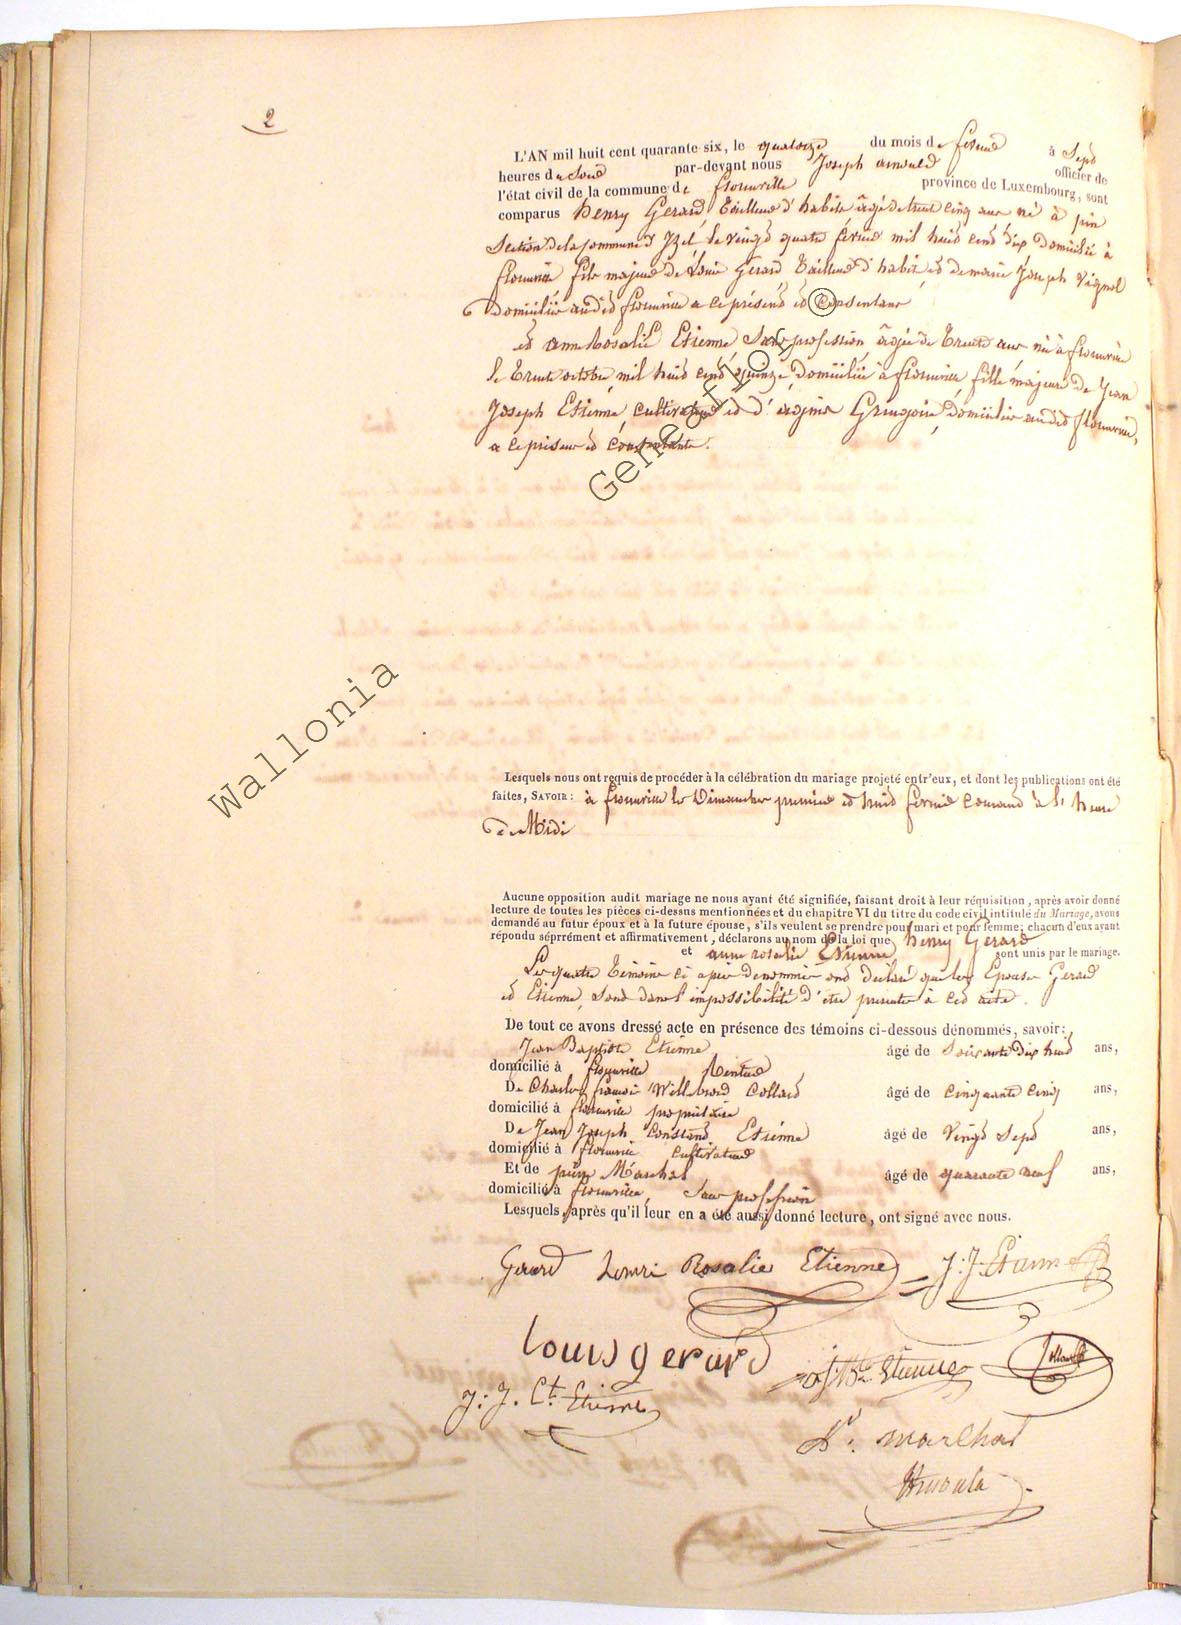 2
L'AN mil huit cent quarante-six, le quatorze du mois de février à Sept
heures du Soir par-devant nous Joseph arnould officier de
l'état civil de la commune de florenville province de Luxembourg, sont
comparus henry Gerard, tailleur d'habits âgé de trente cinq ans né à pin
Section de la commune d'Izel le vingt quatre février mil huit cent dix domicilié à
florenville fils majeur de Louis Gerard tailleur d'habit et de marie Joseph
domiciliés audit florenville a ce présent et Consentant
et anne Rosalie Etienne Sans profession âgée de Trente ans née à florenville
le Trente octobre mil huit cent quinze, domiciliée à florenville fille majeure de Jean
Joseph Etienne, cultivateur et d' Gringoire, domiciliés audit florenville,
a ce présent et consentants.
Lesquels nous ont requis de procéder à la célébration du mariage projeté entr'eux, et dont les publications ont été
faites, SAVOIR: à florenville les Dimanches premier et huit février Courant à l'heure
de Midi
Aucune opposition audit mariage ne nous ayant été signifiée, faisant droit à leur réquisition, après avoir donné
lecture de toutes les pièces ci-dessus mentionnées et du chapitre VI du titre du code civil intitulé du Mariage, avons
demandé au futur époux et à la future épouse, s'ils veulent se prendre pour mari et pour femme; chacun d'eux ayant
répondu séprrément et affirmativement, déclarons au nom de la loi que henry Gerard
et anne rosalie Etienne sont unis par le mariage.
Les quatre témoins ci après denommés ont déclaré que les Epouse Gerard
et Etienne, sont dans l'impossibilité d'être présente à cet acte.
De tout ce avons dressé acte en présence des témoins ci-dessous dénommés, savoir:
Jean Baptiste Etienne âgé de Soixante Dix huit ans,
domicilié à florenville Rentier
De Charles françois Willebrord Collard âgé de Cinquante Cinq ans,
domicilié à florenville propriétaire
De Jean Joseph Constant Etienne âgé de vingt Sept ans,
domicilié à florenville Cultivateur
Et de pierre Maréchal âgé de quarante neuf ans,
domicilié à florenville, Sans profession
Lesquels, après qu'il leur en a été aussi donné lecture, ont signé avec nous.
Gerard henri Rosalie Etienne J: J. Etienne
Louis gerard J. Bte Etienne
J: J. Ct. Etienne
Pre: marechal
Wallonia GenealFlor ©